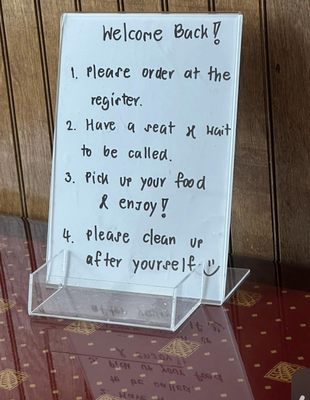 Welcome Back!
1. Please order at the
register.
2. Have a seat & wait
to be called.
3. Pick up your food
& enjoy!
4. Please clean up
after yourself